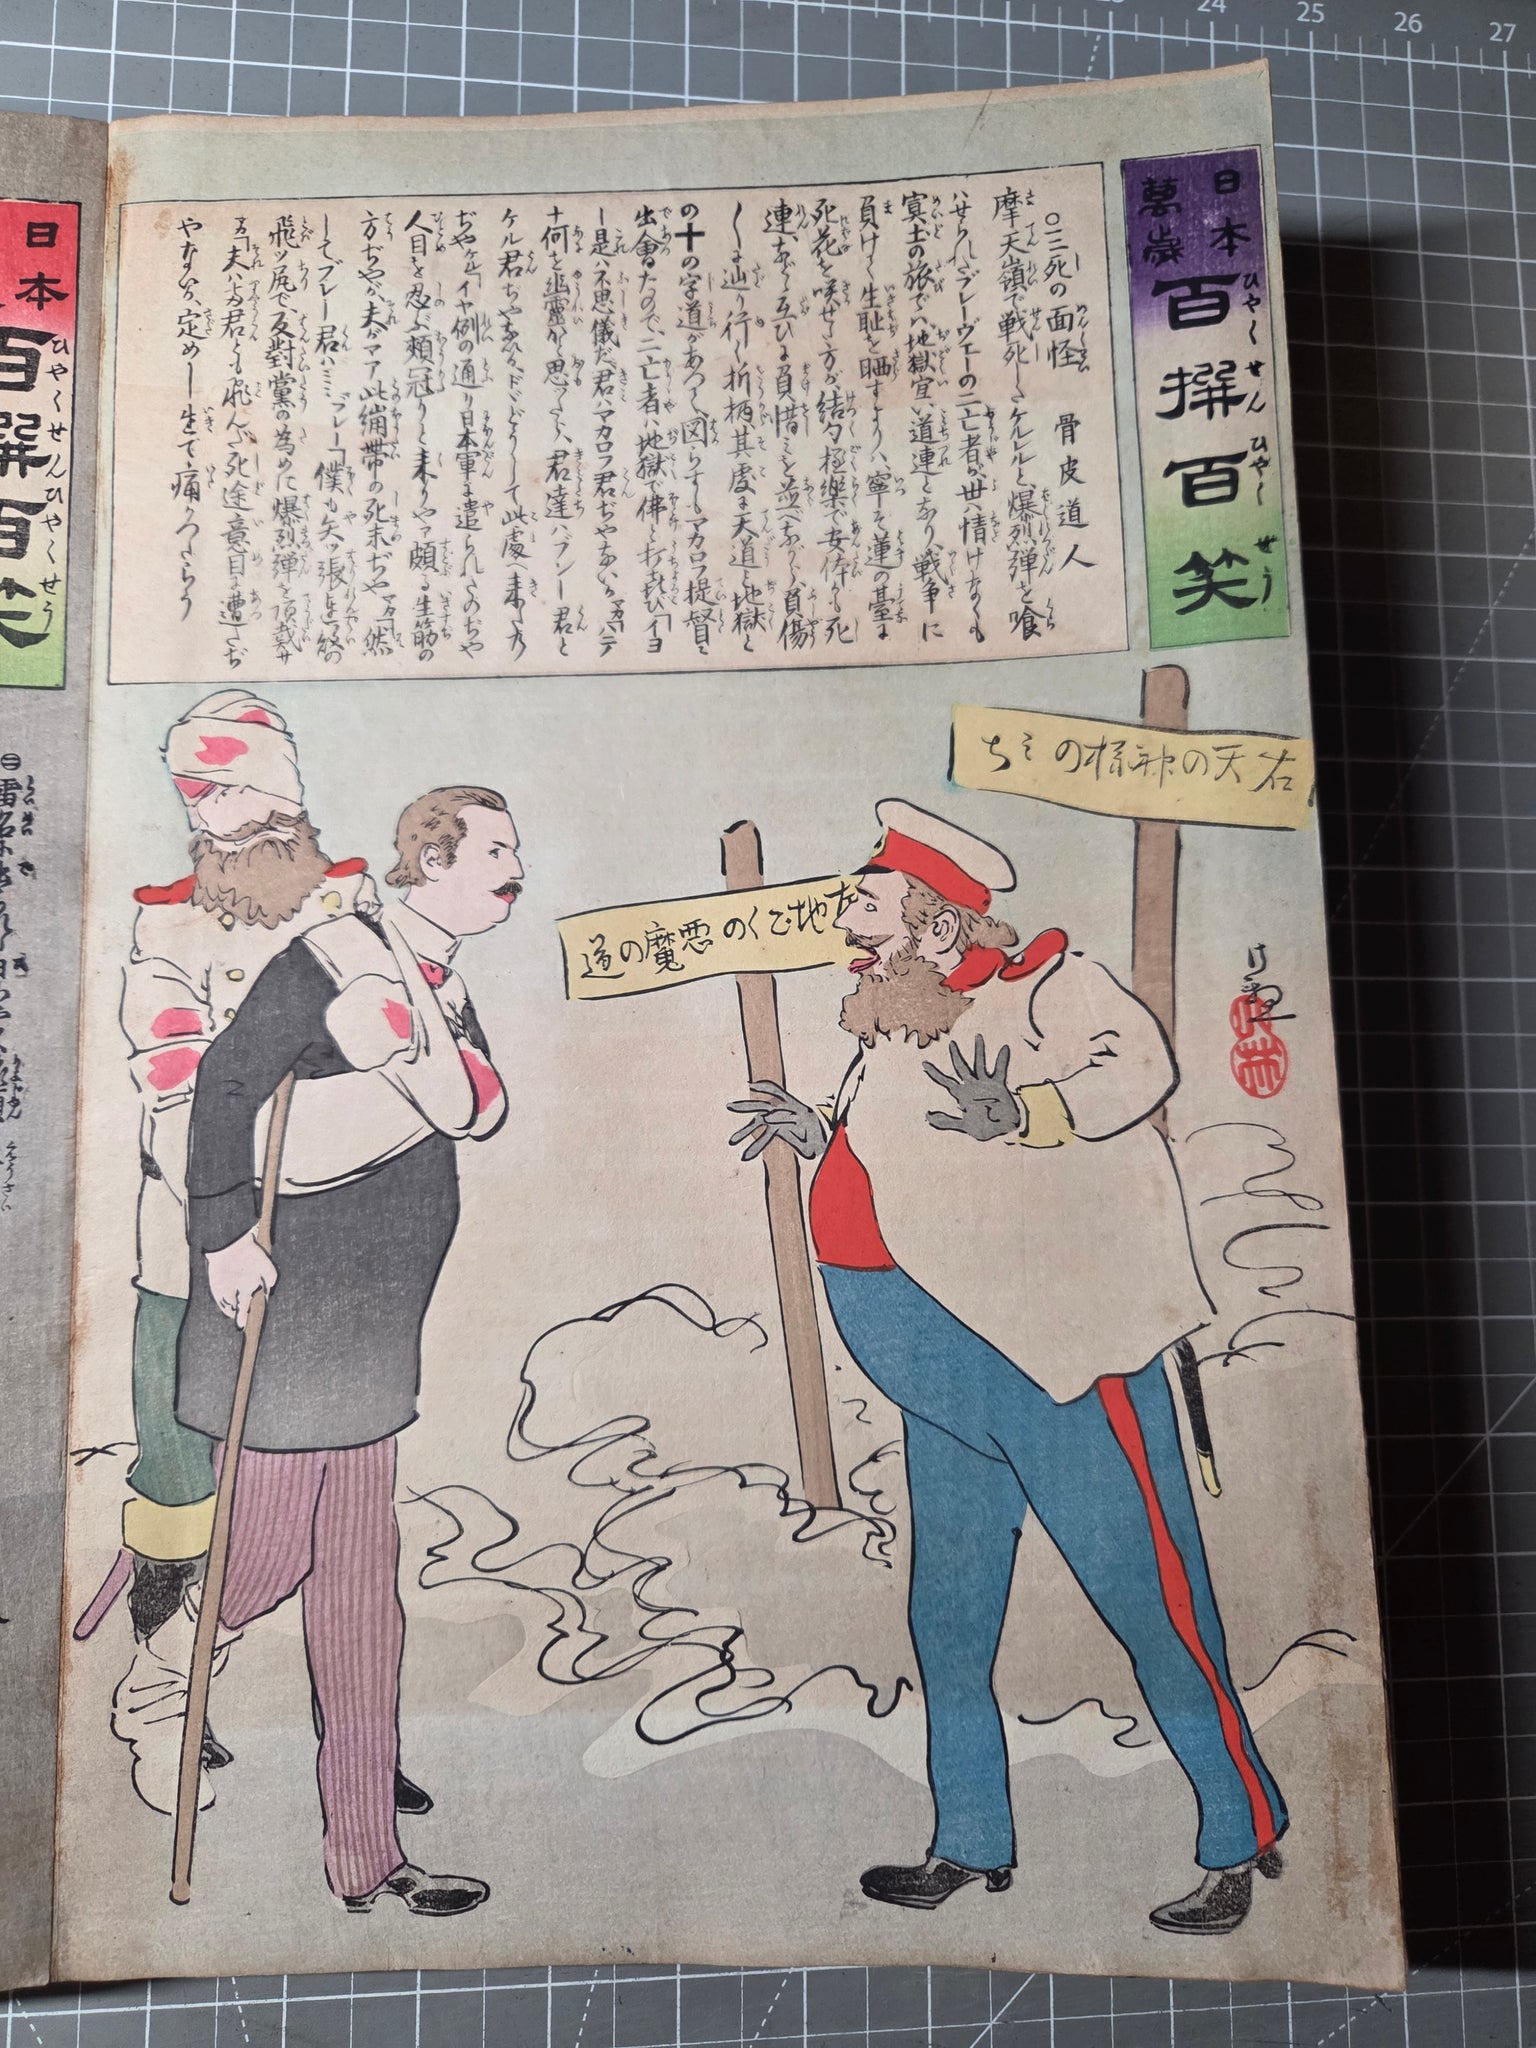 日本
萬歲
百撰百笑
ひやくせんひやくせう
〇三死の面怪 骨皮道人
摩天嶺で戦死したケルレルと、爆烈弾を喰
はせられたプレーヴェーの二亡者が、世に情けなくも
冥土の旅で、地獄宜い道連となり、戦争に
負けて生耻を晒すよりハ、寧そ蓮の臺に
死花を咲せた方が、結句極樂で安体かも死
連、などゝ互ひに負惜ミを並べながら、負傷
しに辿り行く折柄、其處に天道と地獄と
の十の字道があつて、図らずもマカロフ提督に
出會たので、二亡者ハ地獄で佛と打喜び「イヨ
ー是ハ不思儀だ、君ハマカロフ君ぢやないか マカ「ハテ
十何を幽霊かと思つたら、君達ハプレー君と
ケル君ぢやないか、ドどうして此處へ来た乃
ぢや ケル「イヤ例の通り日本軍に遣られたのぢや
人目を忍ぶ頰冠りと来りやァ頗る生筋の
方ぢやが、夫がマア此繃帯の死末ぢや マカ「然
してプレー君ハ…… プレー「僕も矢ッ張連發の
飛ッ尻で反對黨の為めに爆烈弾を頂戴サ
マカ「夫ハ乃君とも飛んだ死途意目に遭たぢ
やないか、定めし生で痛かつたらう
右天の神様のミち
左地ごくの悪魔の道
日本
百撰百笑
ひやくせんひやくせう